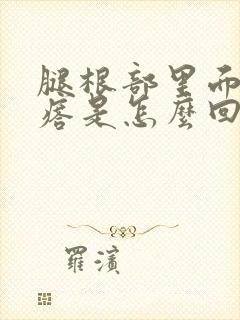 腿根部里而
痞是怎麼回
羅濱